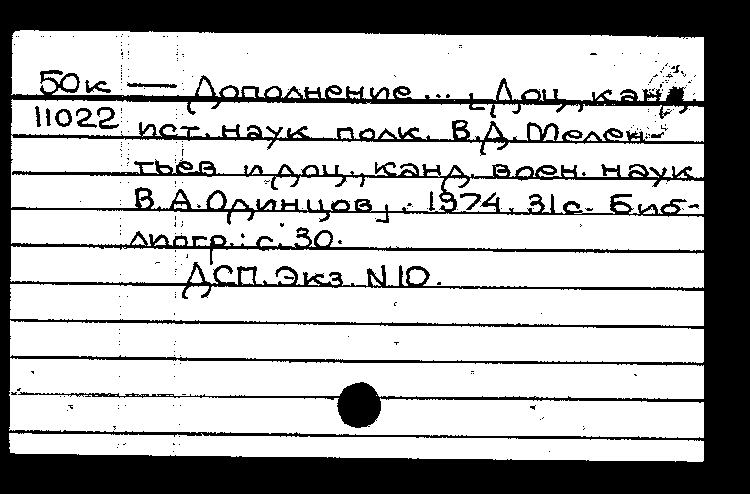 50к — Дополнение... [Доц., канд.
11022 ист. наук полк. В.Д. Мелен-
тьев и доц., канд. воен. наук
В.А. Одинцов]. 1974. 31с. Биб-
лиогр.: с. 30.
ДСП. Экз. N 10.